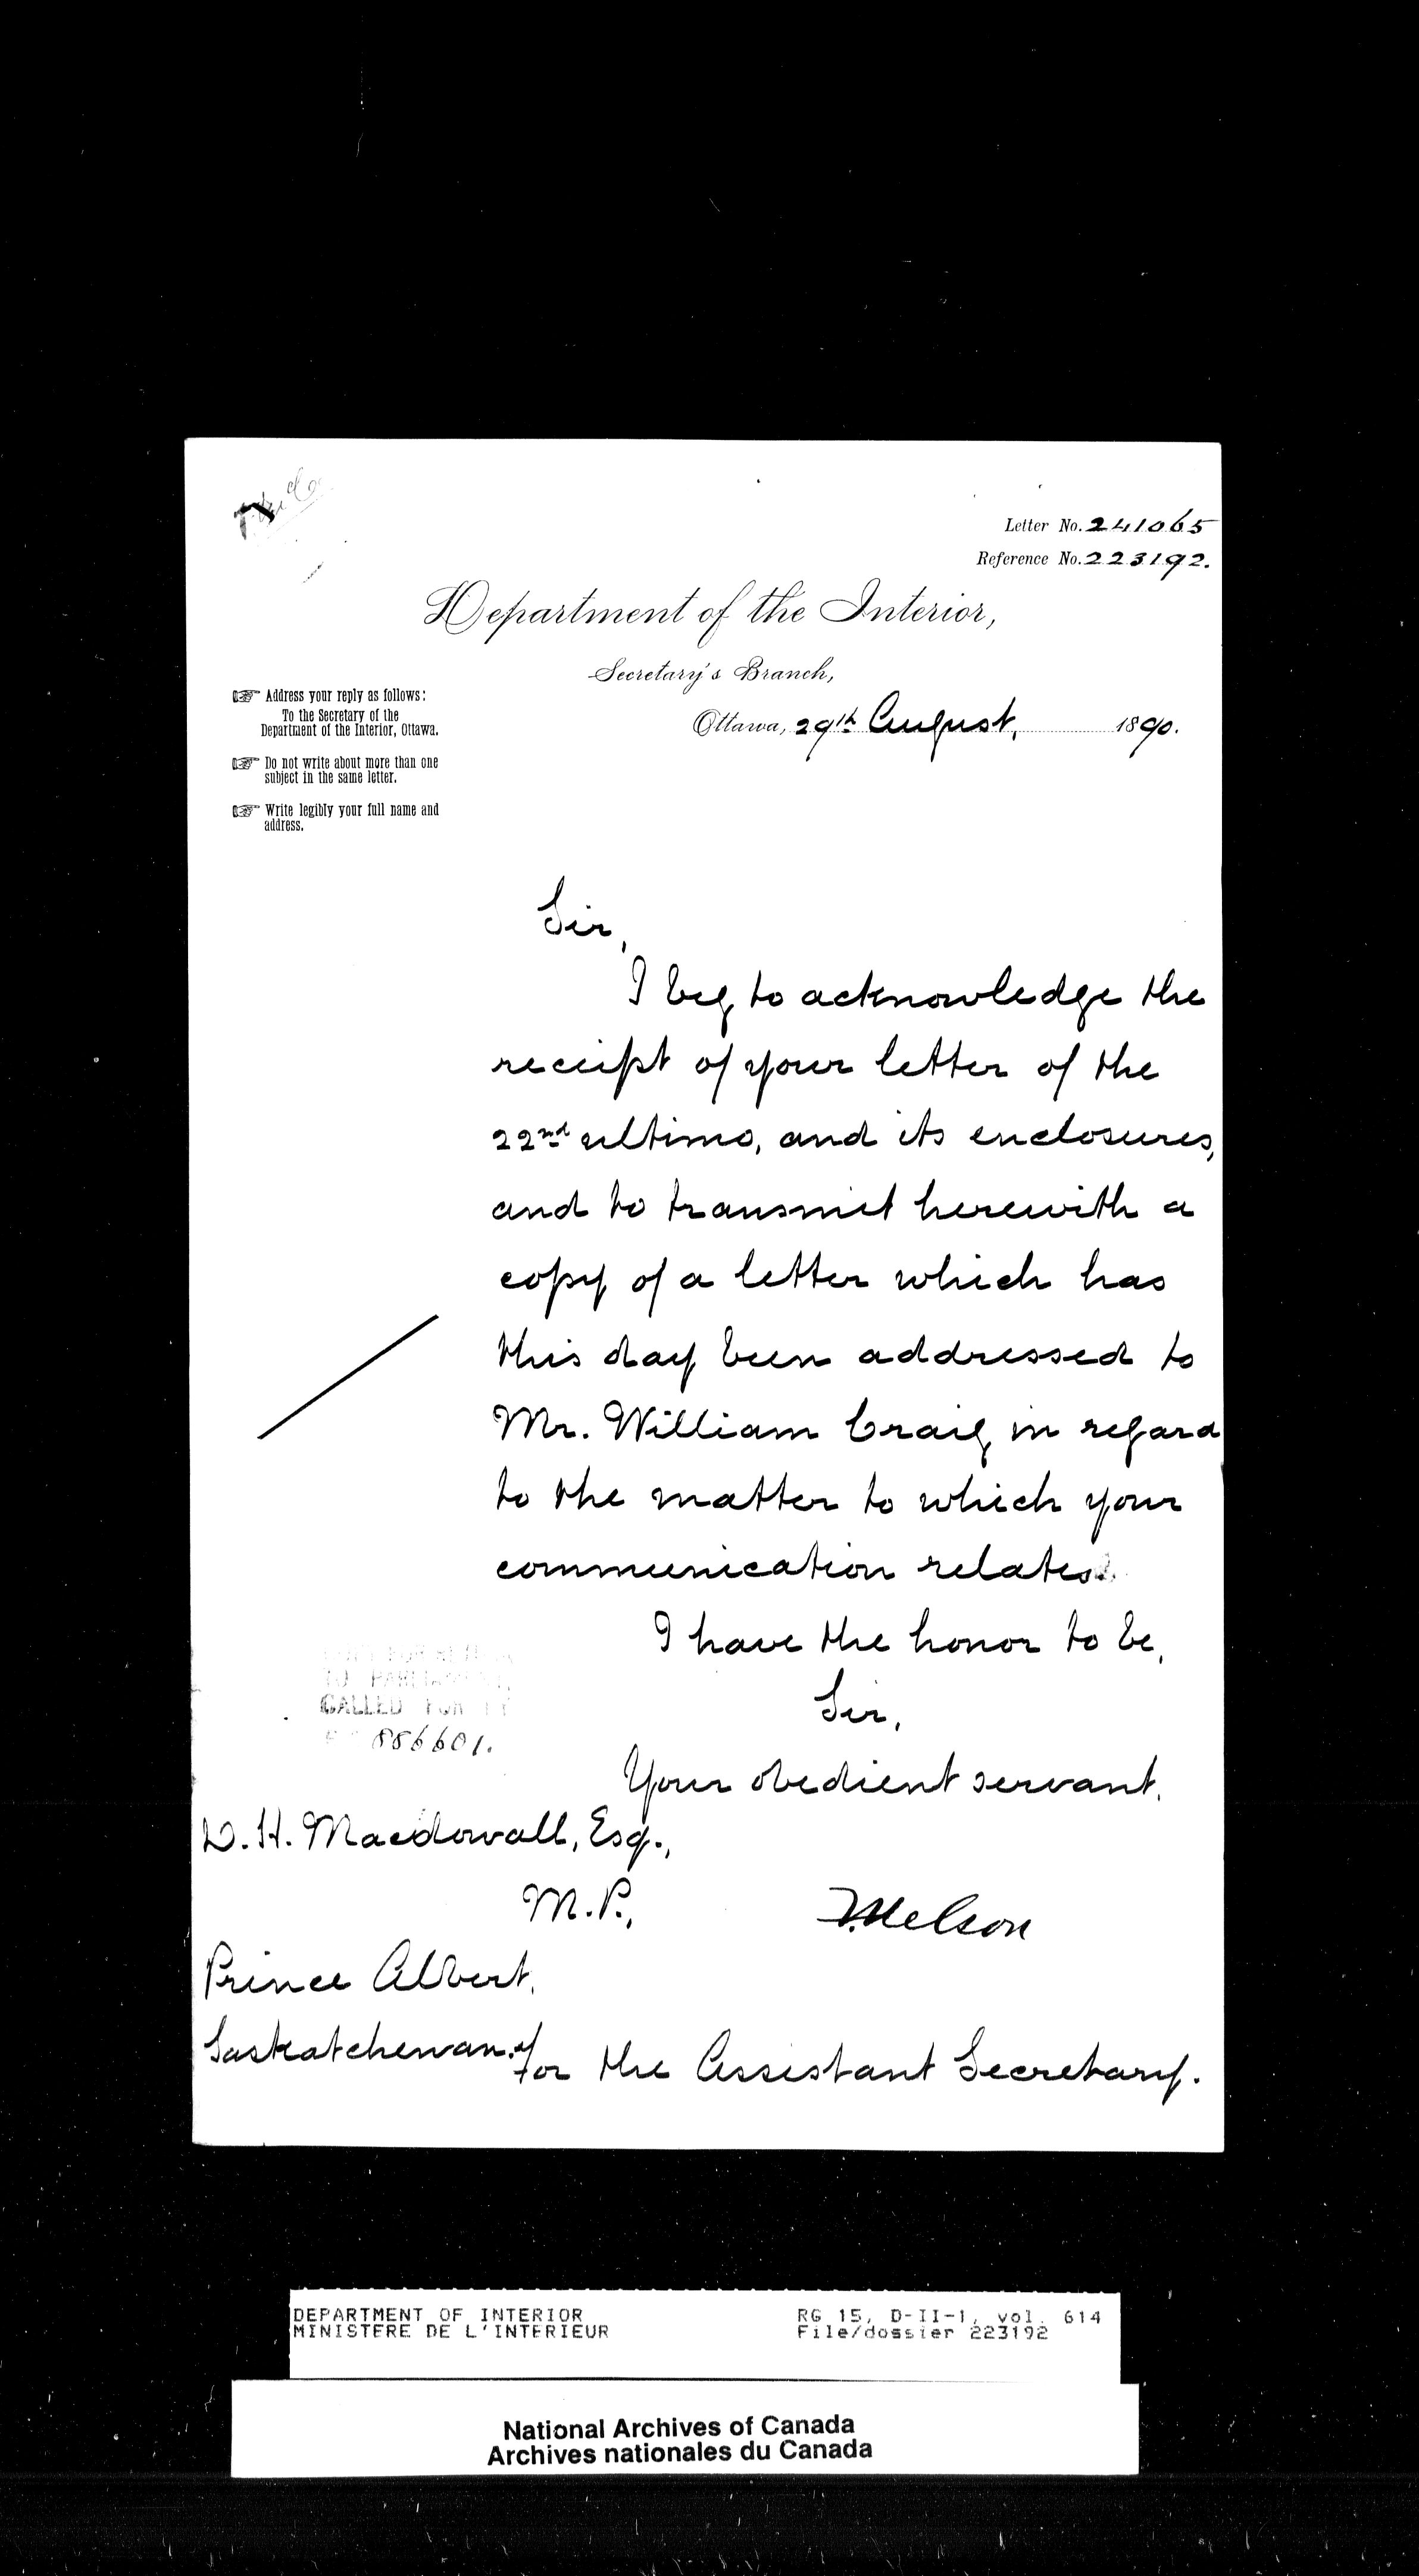 Letter No. 241065
Reference No. 223192.
Department of the Interior,
Secretary's Branch,
Ottawa, 29th August, 1890.
Address your reply as follows:
To the Secretary of the
Department of the Interior, Ottawa.
Do not write about more than one
subject in the same letter.
Write legibly your full name and
address.
Sir,
I beg to acknowledge the
receipt of your letter of the
22nd ultimo, and its enclosures,
and to transmit herewith a
copy of a letter which has
this day been addressed to
Mr. William Craig in regard
to the matter to which your
communication relates.
I have the honor to be,
Sir,
Your obedient servant.
TO PARLIAMENT,
CALLED FOR BY
886601.
D. H. Macdowall, Esq.,
M.P.,
Prince Albert,
Saskatchewan.
For the Assistant Secretary.
DEPARTMENT OF INTERIOR
MINISTERE DE L'INTERIEUR
RG 15, D-II-1, vol. 614
File/dossier 223192
National Archives of Canada
Archives nationales du Canada